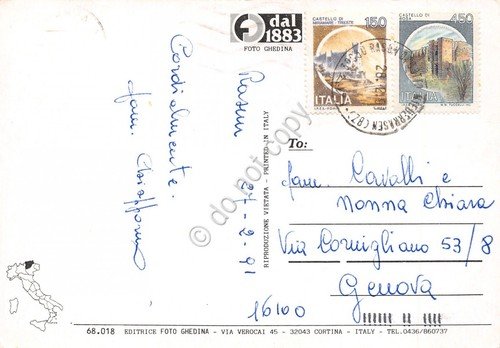 dal
1883
FOTO GHEDINA
CASTELLO DI
MIRAMARE - TRIESTE
150
ITALIA
450
ITALIA
Rasun 24-2-91
Cordialmente.
fam.
To:
fam. Cavalli e
nonna Chiara
Via Cornigliano 53/8
Genova
16100
RIPRODUZIONE VIETATA - PRINTED IN ITALY
do not copy
68.018 EDITRICE FOTO GHEDINA - VIA VEROCAI 45 - 32043 CORTINA - ITALY - TEL. 0436/860737